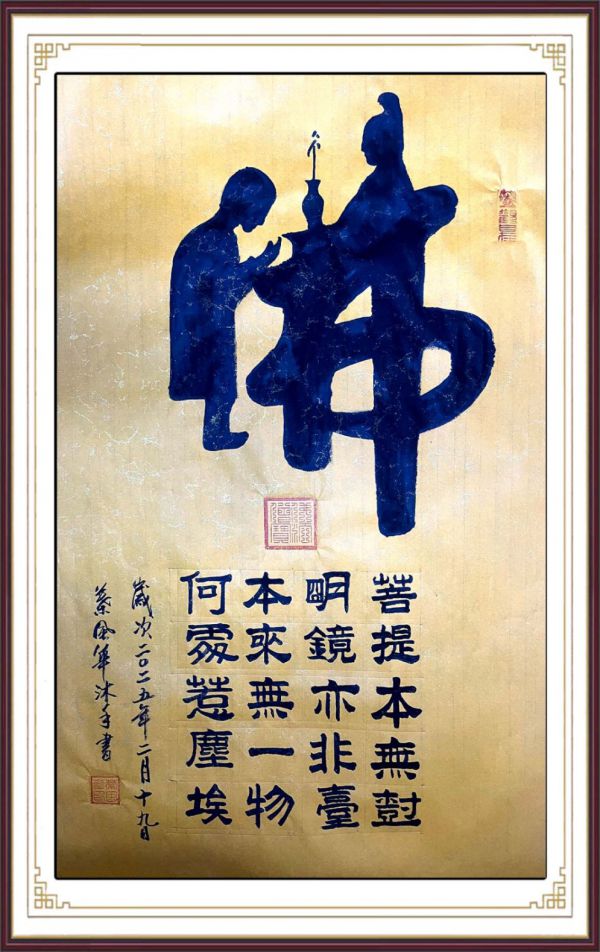 佛
菩提本無尌
朙鏡亦非臺
本來無一物
何處惹塵埃
歲次二〇二五年二月十九日
沐手書